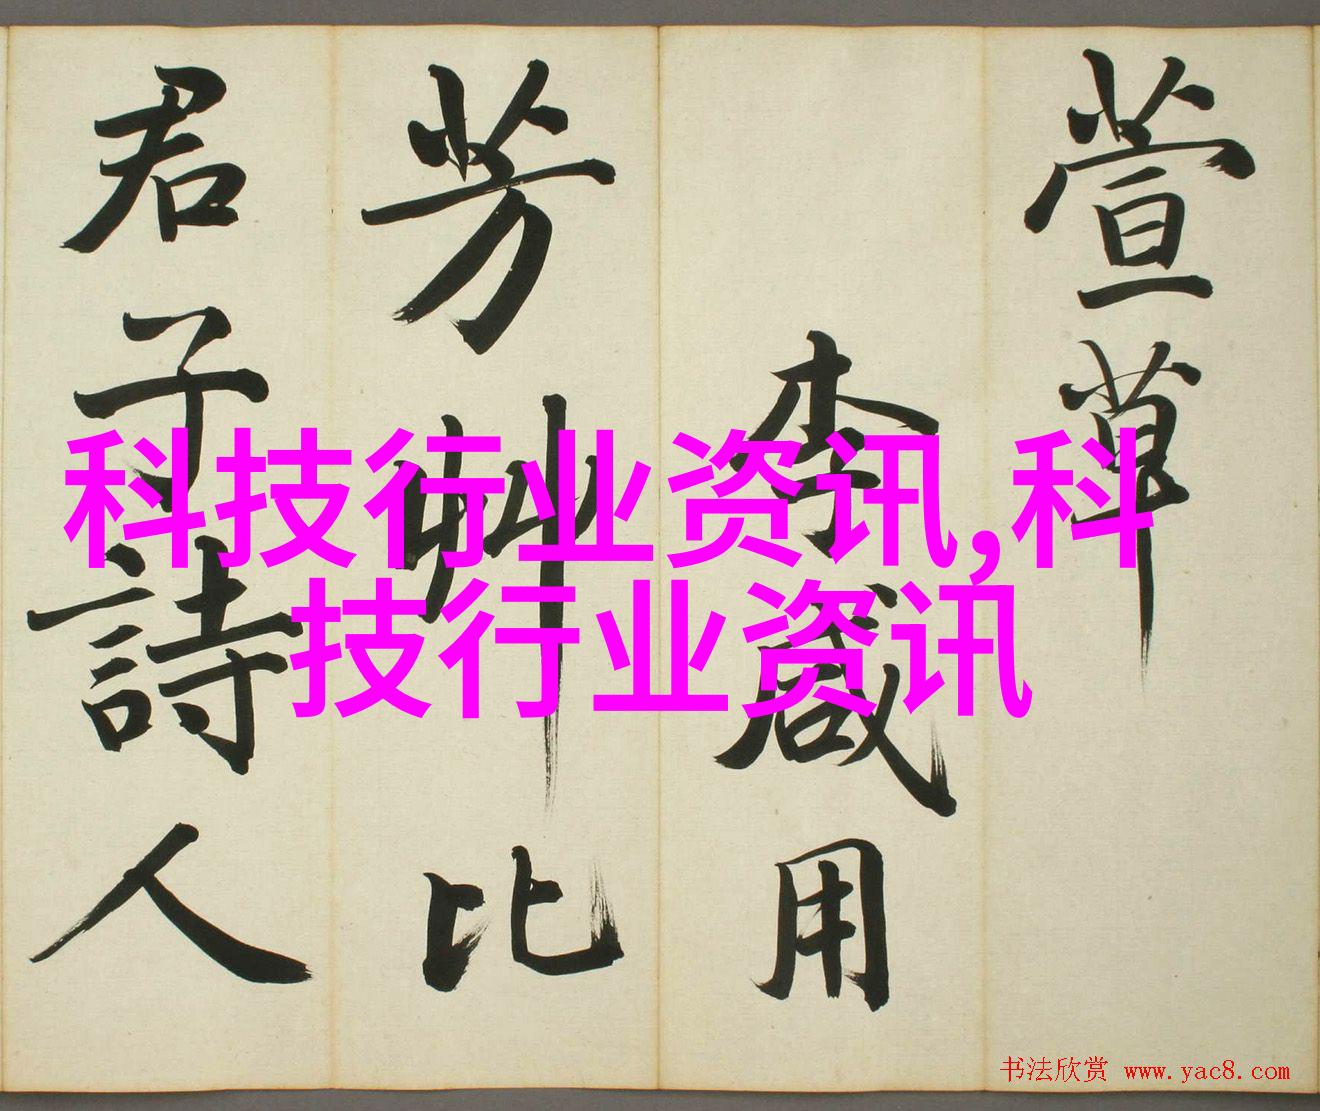 萱草
李咸用
芳艸比
君子詩人
科技行业资讯,科
技行业资讯
书法欣赏 www.yac8.com